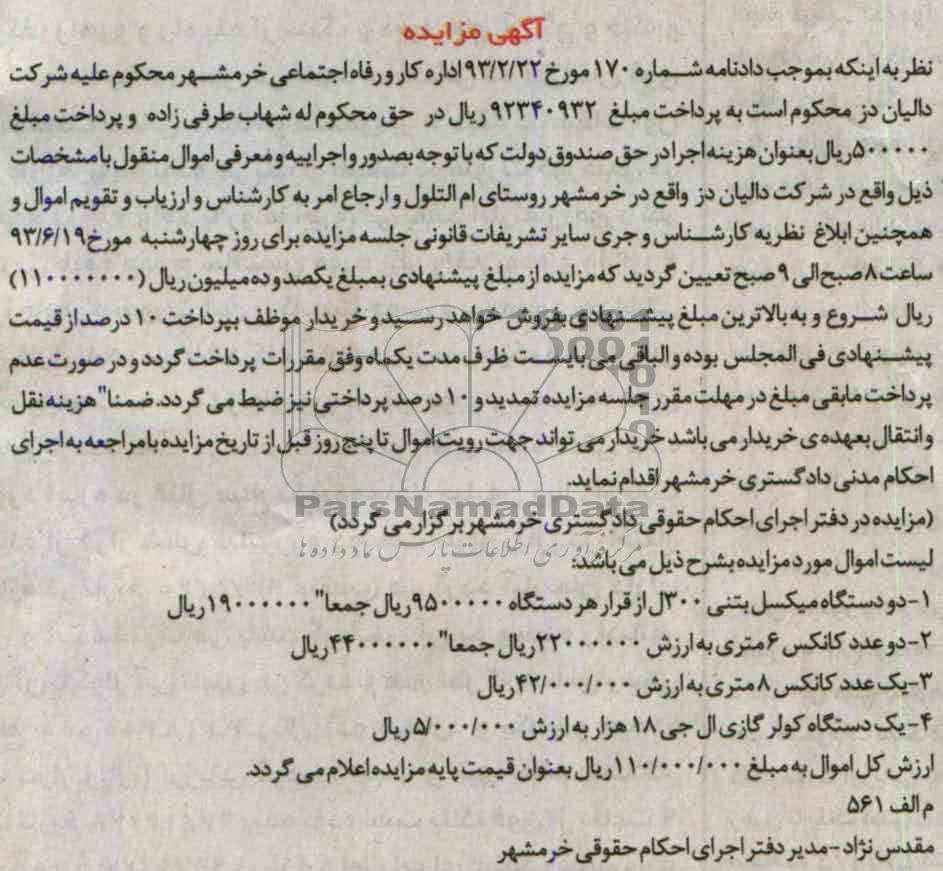 آگهی مزایده
نظر به اینکه بموجب دادنامه شماره ۱۷۰ مورخ ۹۳/۲/۲۲ اداره کار و رفاه اجتماعی خرمشهر محکوم علیه شرکت
دالیان دز محکوم است به پرداخت مبلغ ۹۲۳۴۰۹۳۲ ریال در حق محکوم له شهاب طرفی زاده و پرداخت مبلغ
۵۰۰۰۰۰ ریال بعنوان هزینه اجرا در حق صندوق دولت که با توجه بصدور و اجراییه و معرفی اموال منقول با مشخصات
ذیل واقع در شرکت دالیان دز واقع در خرمشهر روستای ام التلول و ارجاع امر به کارشناس و ارزیاب و تقویم اموال و
همچنین ابلاغ نظریه کارشناس و جری سایر تشریفات قانونی جلسه مزایده برای روز چهارشنبه مورخ ۹۳/۶/۱۹
ساعت ۸ صبح الی ۹ صبح تعیین گردید که مزایده از مبلغ پیشنهادی بمبلغ یکصد و ده میلیون ریال (۱۱۰۰۰۰۰۰۰)
ریال شروع و به بالاترین مبلغ پیشنهادی بفروش خواهد رسید و خریدار موظف بپرداخت ۱۰ درصد از قیمت
پیشنهادی فی المجلس بوده و الباقی می بایست ظرف مدت یکماه وفق مقررات پرداخت گردد و در صورت عدم
پرداخت مابقی مبلغ در مهلت مقرر جلسه مزایده تمدید و ۱۰ درصد پرداختی نیز ضبط می گردد. ضمنا" هزینه نقل
و انتقال بعهده ی خریدار می باشد خریدار می تواند جهت رویت اموال تا پنج روز قبل از تاریخ مزایده با مراجعه به اجرای
احکام مدنی دادگستری خرمشهر اقدام نماید.
ParsNamadData
(مزایده در دفتر اجرای احکام حقوقی دادگستری خرمشهر برگزار می گردد)
مرکز فرآوری اطلاعات پارس نماد داده ها
لیست اموال مورد مزایده بشرح ذیل می باشد:
۱- دو دستگاه میکسل بتنی ۳۰۰ل از قرار هر دستگاه ۹۵۰۰۰۰۰ ریال جمعا" ۱۹۰۰۰۰۰۰ ریال
۲- دو عدد کانکس ۶ متری به ارزش ۲۲۰۰۰۰۰۰ ریال جمعا" ۴۴۰۰۰۰۰۰ ریال
۳- یک عدد کانکس ۸ متری به ارزش ۴۲/۰۰۰/۰۰۰ ریال
۴- یک دستگاه کولر گازی ال جی ۱۸ هزار به ارزش ۵/۰۰۰/۰۰۰ ریال
ارزش کل اموال به مبلغ ۱۱۰/۰۰۰/۰۰۰ ریال بعنوان قیمت پایه مزایده اعلام می گردد.
م الف ۵۶۱
مقدس نژاد - مدیر دفتر اجرای احکام حقوقی خرمشهر